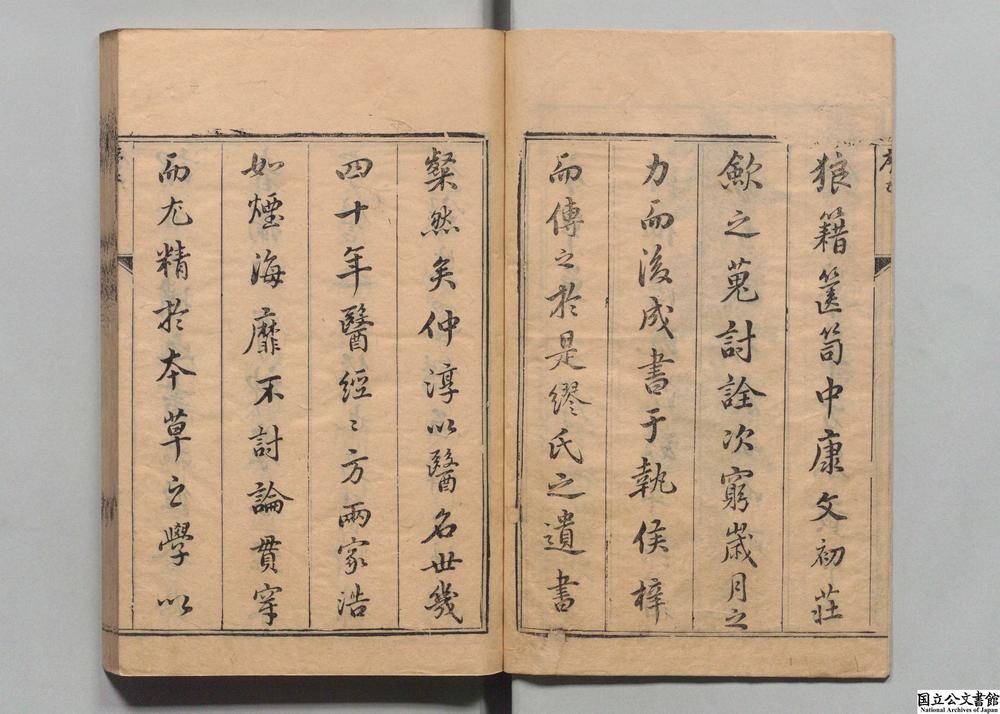 狼籍篋笥中康文初莊
歛之蒐討詮次窮嵗月之
力而後成書于執侯梓
而傳之於是繆氏之遺書
粲然矣仲淳以醫名世幾
四十年醫經〻方兩家浩
如煙海靡不討論貫穿
而尤精於本草之學以
国立公文書館
National Archives of Japan